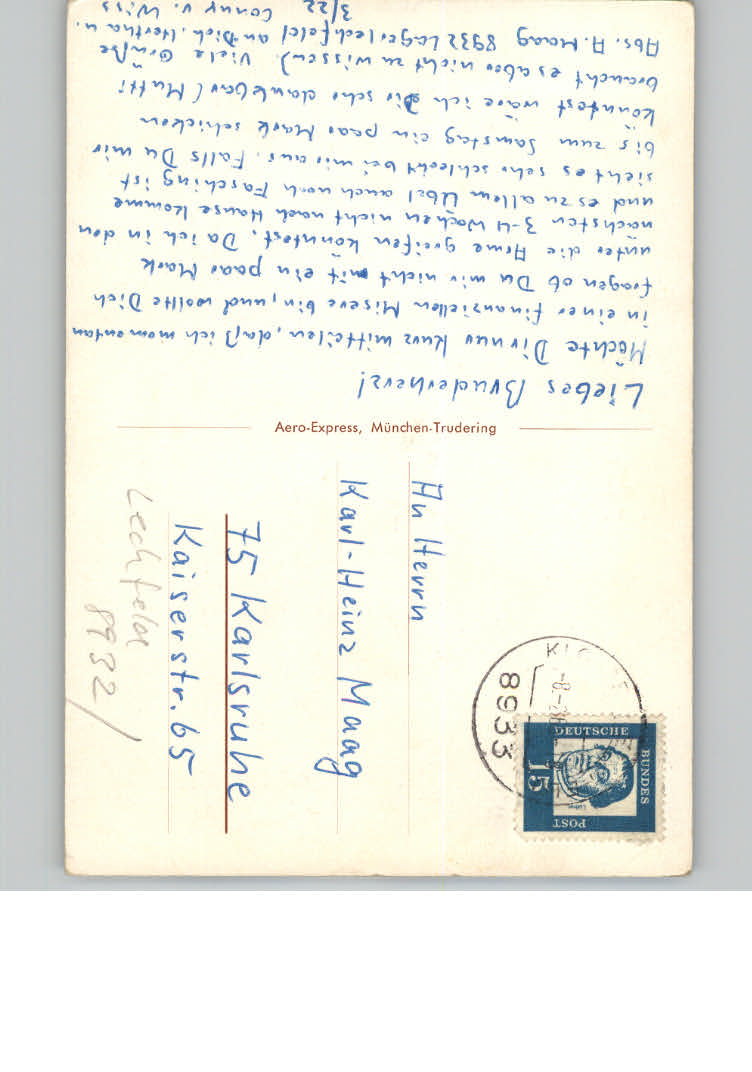 Liebes Bruderherz!
Möchte Dir nur kurz mitteilen, daß ich momentan
in einer finanziellen Misere bin, und wollte Dich
fragen ob Du mir nicht mit ein paar Mark
unter die Arme greifen könntest. Da ich in den
nächsten 3-4 Wochen nicht nach Hause komme
und es zu allem Übel auch noch Fasching ist
sieht es sehr schlecht bei mir aus. Falls Du mir
bis zum Samstag ein paar Mark schicken
könntest wäre ich Dir sehr dankbar (Mutti
braucht es aber nicht zu wissen). Viele Grüße
Abs. A. Maag 8932 Lagerlechfeld an Dich, Hertha u.
3/22 Conny v.
Aero-Express, München-Trudering
An Herrn
Karl-Heinz Maag
75 Karlsruhe
Kaiserstr. 65
Lechfeld
8932/
8933
DEUTSCHE
BUNDES
POST
15
Luther